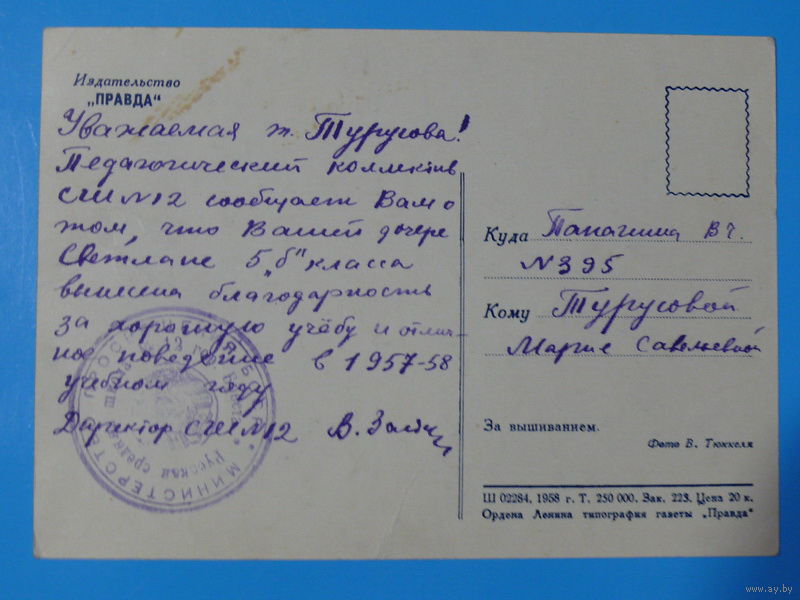 Издательство
„ПРАВДА“
Уважаемая т. Турусова!
Педагогический коллектив
СШ N12 сообщает Вам о
том, что Вашей дочере
Светлане 5 „б“ класса
вынесена благодарность
за хорошую учёбу и отлич-
ное поведение в 1957-58
учебном году
Директор СШ N12 В.
МИНИСТЕРСТВО
Русская средняя
Куда Папанина В ч.
N 395
Кому Турусовой
Марие Савельевной
За вышиванием.
Фото В. Тюккеля
Ш 02284. 1958 г. Т. 250 000. Зак. 223. Цена 20 к.
Ордена Ленина типография газеты „Правда“
www.ay.by